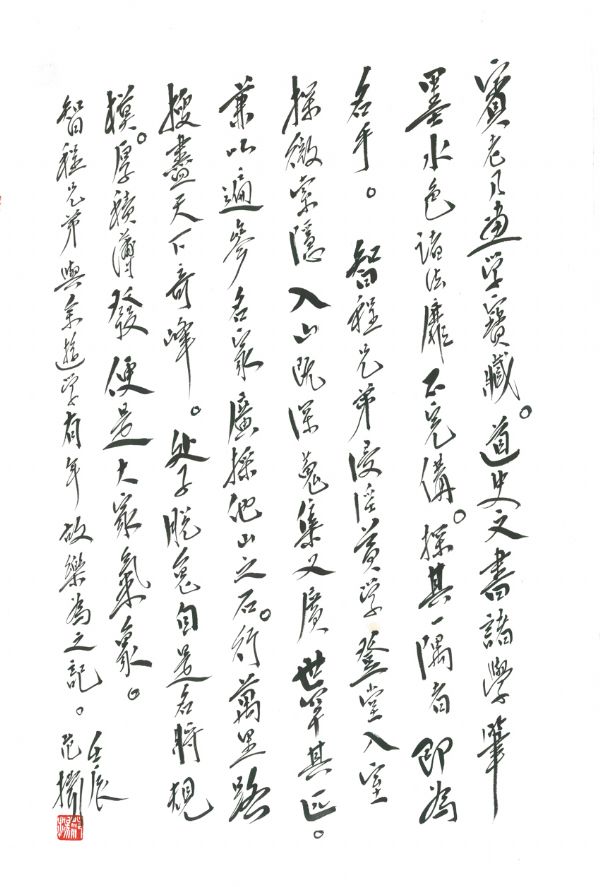 賓老乃畫学寶藏。道史文書諸學筆
墨水色諸法靡不完備。探其一隅者即為
名手。智程兄弟浸淫黃学登堂入室
探微索隱入山既深蒐集又廣世罕其匹。
兼以遍參名家廣採他山之石。行萬里路
搜盡天下奇峰。处子脫兔自是名將規
模。厚積薄發便是大家氣象。
智程兄弟與余遊学有年故樂為之記。
壬辰
范揚